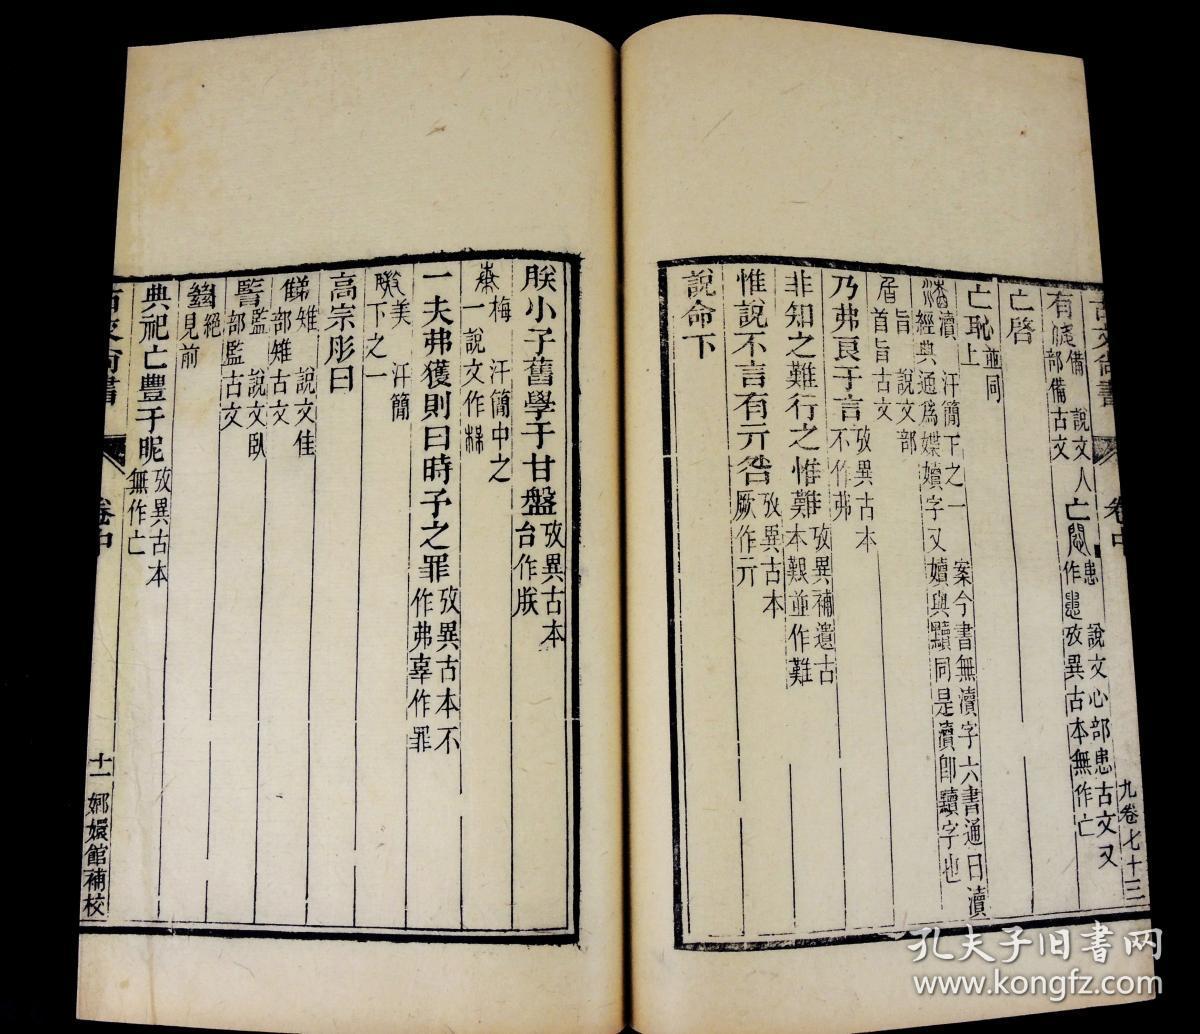 古文尚書
卷中
九卷七十三
有𢖍備 說文人部備古文
亡患 說文心部患古文又作 攷異古本無作亡
亡啓
亡恥上 並同
瀆 汗簡下之一 案今書無瀆字六書通曰瀆經典通爲媟嬻字又嬻與黷同是瀆卽黷字也
旨 說文部首旨古文
乃弗良于言 攷異古本不作弗
非知之難行之惟難 攷異補遺古本艱並作難
惟說不言有亓咎 攷異古本厥作亓
說命下
朕小子舊學于甘盤 攷異古本台作朕
梅 汗簡中之一 說文作槑
一夫弗獲則曰時予之罪 攷異古本不作弗辜作罪
美 汗簡下之一
高宗肜日
雉 說文隹部雉古文
監 說文臥部監古文
絕 見前
典祀亡豐于昵 攷異古本無作亡
古文尚書
卷中
十一
嫏嬛館補校
孔夫子旧書网
www.kongfz.com